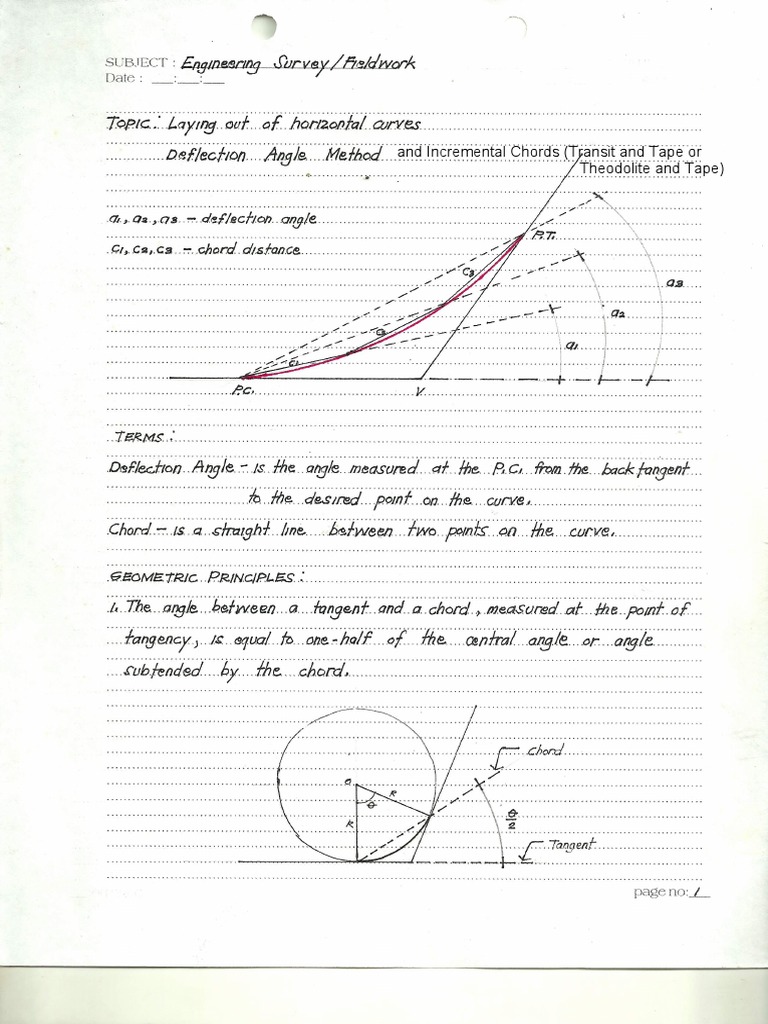 SUBJECT : Engineering Survey/Fieldwork
Date : ___:___:___
TOPIC: Laying out of horizontal curves
Deflection Angle Method and Incremental Chords (Transit and Tape or
Theodolite and Tape)
a1, a2, a3 - deflection angle
c1, c2, c3 - chord distance
P.T.
c3
a3
a2
c2
a1
c1
P.C.
V
TERMS:
Deflection Angle - is the angle measured at the P.C. from the back tangent
to the desired point on the curve.
Chord - is a straight line between two points on the curve.
GEOMETRIC PRINCIPLES:
1. The angle between a tangent and a chord, measured at the point of
tangency, is equal to one-half of the central angle or angle
subtended by the chord.
Chord
O
R
θ
R
θ/2
Tangent
page no: 1